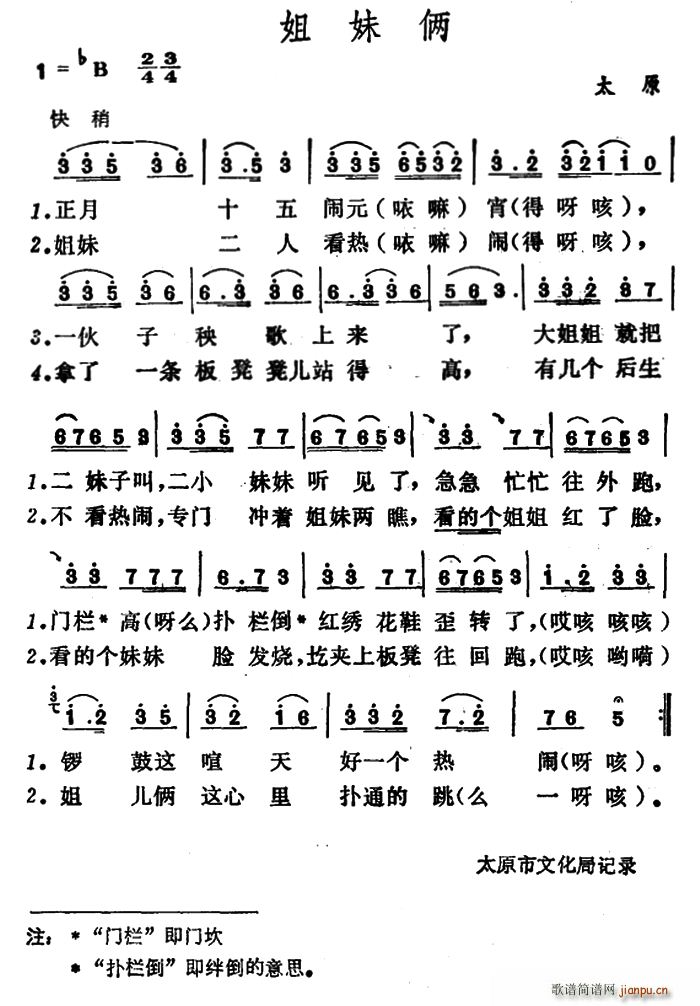 姐妹俩
1=♭B 2/4 3/4
太原
快稍
3 3 5 3 6 | 3 . 5 3 | 3 3 5 6532 | 3 . 2 32110 |
1.正月 十五 闹元(哝嘛)宵(得呀咳),
2.姐妹 二人 看热(哝嘛)闹(得呀咳),
3 3 5 3 6 | 6 . 3 3 6 | 6 . 3 3 6 | 5 6 3 . | 3 3 2 8 7 |
3.一伙子秧歌上来了,大姐姐就把
4.拿了一条板凳凳儿站得高,有几个后生
67653 | 3 3 5 7 7 | 67653 | 3 3 7 7 | 67653 |
1.二妹子叫,二小妹妹听见了,急急忙忙往外跑,
2.不看热闹,专门冲着姐妹两瞧,看的个姐姐红了脸,
3 3 7 777 | 6 . 7 3 | 3 3 2 7 7 | 67653 | 1 . 2 3 3 |
1.门栏*高(呀么)扑栏倒*红绣花鞋歪转了,(哎咳咳咳)
2.看的个妹妹脸发烧,圪夹上板凳往回跑,(哎咳哟嗬)
3 1 . 2 3 5 | 3 2 1 6 | 3 3 2 7 . 2 | 7 6 5 :‖
1.锣鼓这喧天好一个热闹(呀咳)。
2.姐儿俩这心里扑通的跳(么一呀咳)。
太原市文化局记录
注: *“门栏”即门坎
*“扑栏倒”即绊倒的意思。
歌谱简谱网
jianpu.cn